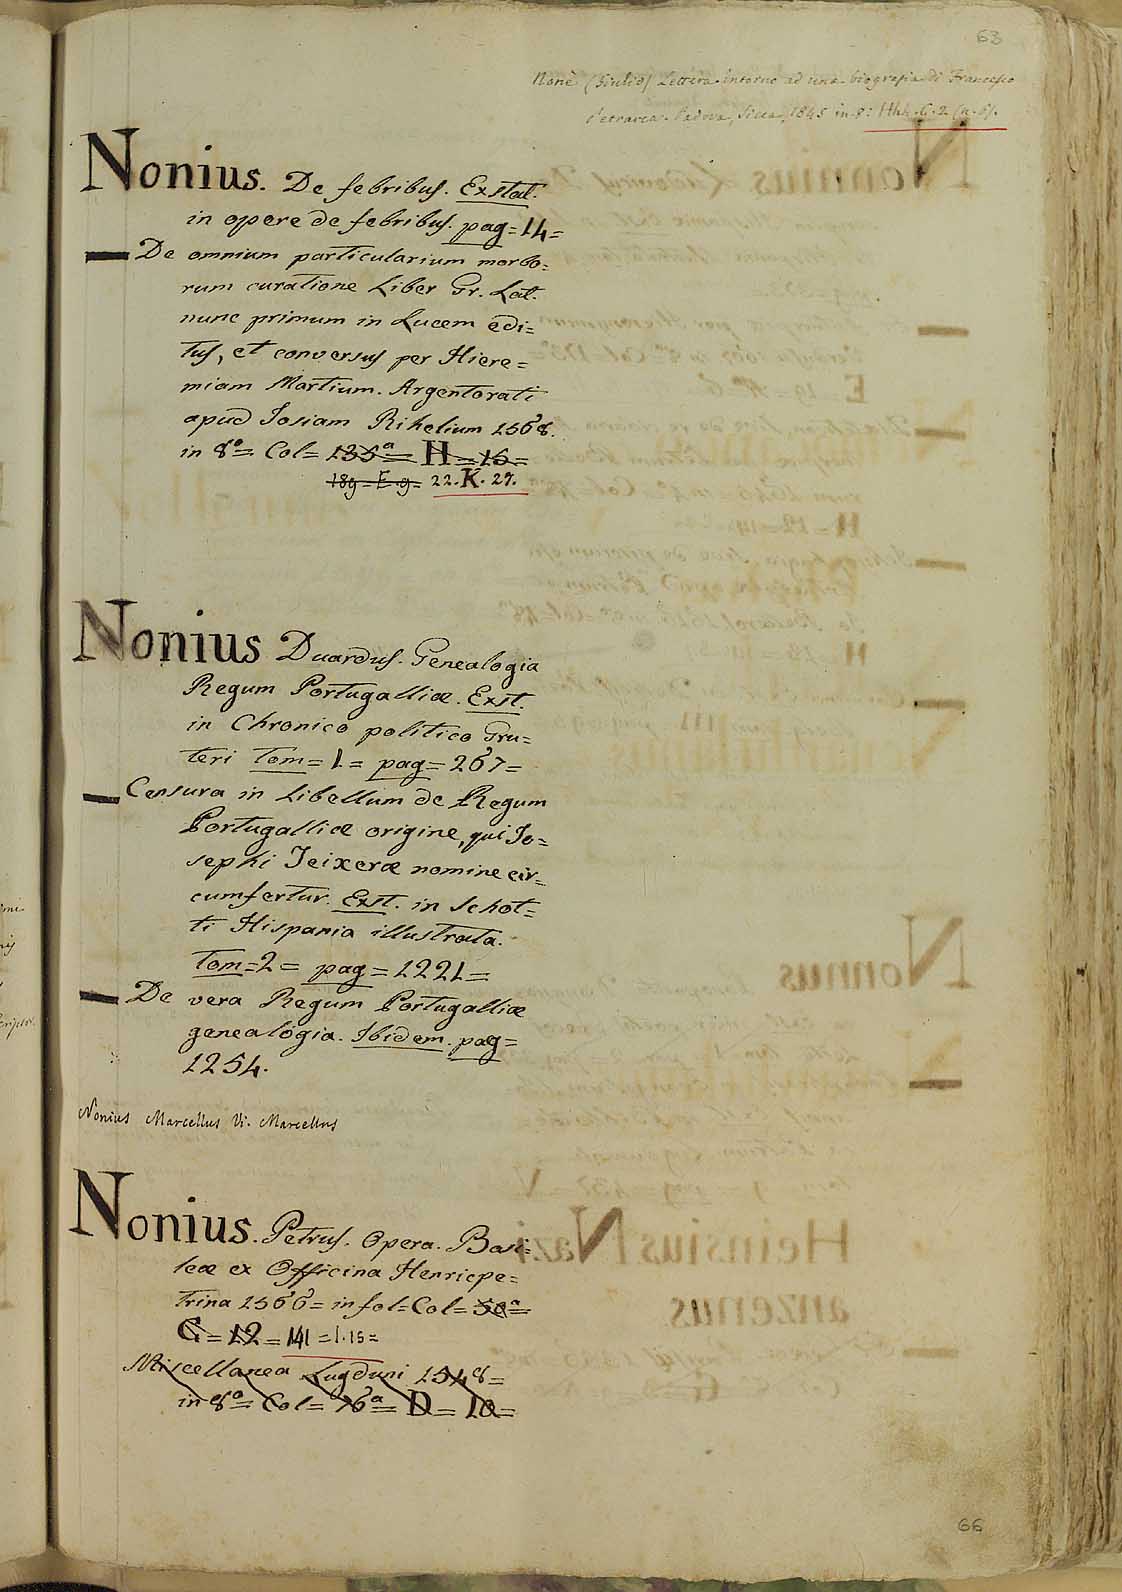 63
Nonè (Giulio) Lettera intorno ad una biografia di Francesco
Petrarca. Padova, Sicca, 1845 in 8: Hhh. C. 2 (n. 6).
Nonius. De febribus. Extat.
in opere de febribus. pag=14=
— De omnium particularium morbo=
rum curatione Liber Gr. Lat.
nunc primum in Lucem edi=
tus, et conversus per Hiere=
miam Martium. Argentorati
apud Iosiam Rihelium 1568.
in 8º= Col= 135ª= H=15=
189=E.9= 22.K.27.
Nonius Duardus. Genealogia
Regum Portugalliæ. Exst.
in Chronico politico Gru=
teri Tom=1.= pag=267=
— Censura in Libellum de Regum
Portugalliæ origine, qui Io=
sephi Teixeræ nomine cir=
cumfertur. Exst. in Schot=
ti Hispania illustrata.
Tom=2= pag=1221=
— De vera Regum Portugalliæ
genealogia. Ibidem. pag=
1254.
Nonius Marcellus Vi. Marcellus
Nonius. Petrus. Opera. Basi=
leæ ex Officina Henricpe=
trina 1566= in fol=Col= 50ª=
C=12= 141=I.15=
Miscellanea Lugduni 1548=
in 8º= Col= 76ª= D=10=
66